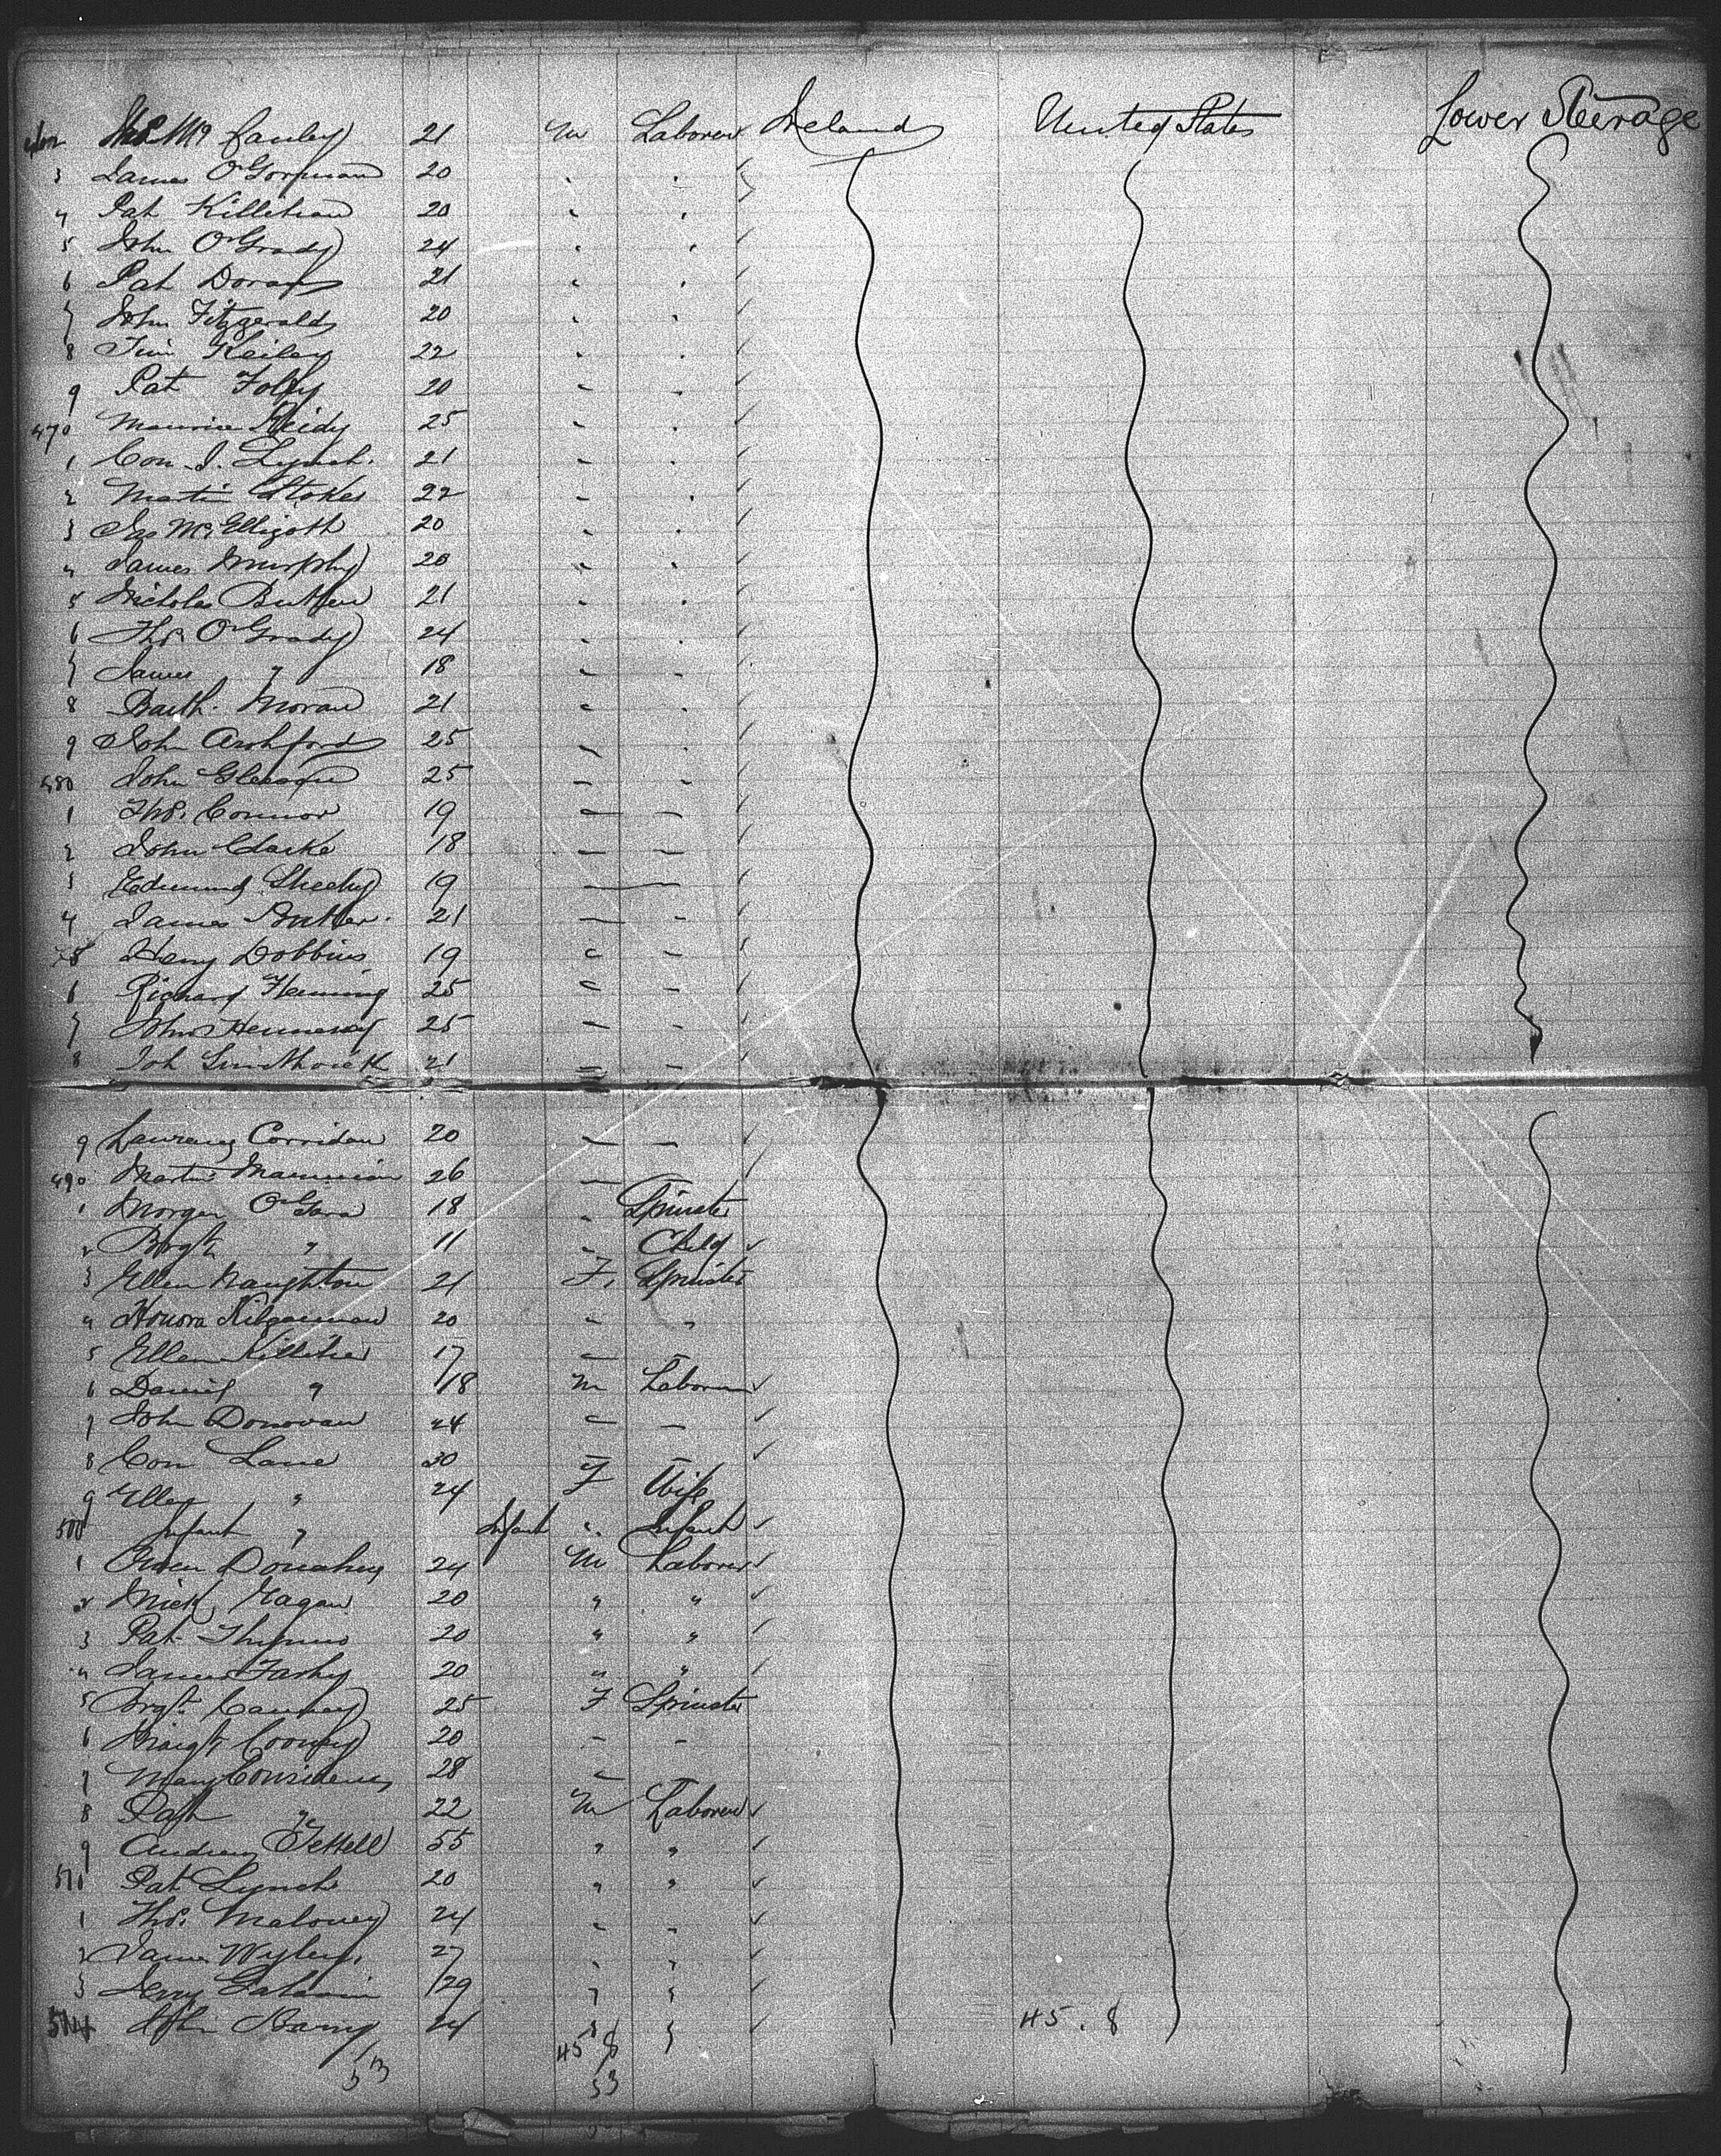 462 Thos. McCauley 21 m Laborer Ireland United States Lower Steerage
3 James O'Gorman 20 " "
4 Pat Killehan 20 " "
5 John O'Grady 24 " "
6 Pat Doran 21 " "
7 John Fitzgerald 20 " "
8 Tim Keiley 22 " "
9 Pat Foley 20 " "
470 Maurice Reidy 25 " "
1 Con. J. Lynch. 21 " "
2 Martin Stokes 22 " "
3 Jas McElligoth 20 " "
4 James Murphy 20 " "
5 Nicholas Butler 21 " "
6 Thos. O'Grady 24 " "
7 James " 18 " "
8 Barth. Moran 21 " "
9 John Arshford 25 " "
480 John Gleason 25 " "
1 Thos. Connor 19 " "
2 John Clarke 18 " "
3 Edmund Sheehy 19 " "
4 James Butler. 21 " "
5 Henry Dobbins 19 " "
6 Richard Fleming 25 " "
7 John Hennessy 25 " "
8 Joh Smithwick 21 " "
9 Laurence Corridan 20 " "
490 Martin 26 " "
1 Morgan O'Gara 18 " Spinster
2 Brgt. " 11 " Child
3 Ellen Naughton 21 F. Spinster
4 Honora 20 " "
5 Ellen Killeher 17 " "
6 Daniel " 18 m Laborer
7 John Donovan 24 " "
8 Con Lane 30 " "
9 Ellen " 24 F Wife
500 Infant " Infant " Infant
1 Owen Donahey 24 M Laborer
2 Mick Eagan 20 " "
3 Pat 20 " "
4 James Fahy 20 " "
5 Brgt. Canney 25 F Spinster
6 Margt. Cooney 20 " "
7 Mary Considine 28 " "
8 Pat " 22 M Laborer
9 Andrew Tettell 55 " "
510 Pat Lynch 20 " "
1 Thos. Maloney 24 " "
2 James Wyley. 27 " "
3 Jerry Galavin 29 " "
514 John Barry 24 " " 45. 8
53 45 8
53